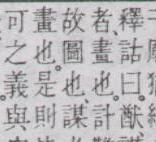 釋詁曰猷
者畫也計
故圖也謀
畫是也則
可之義與